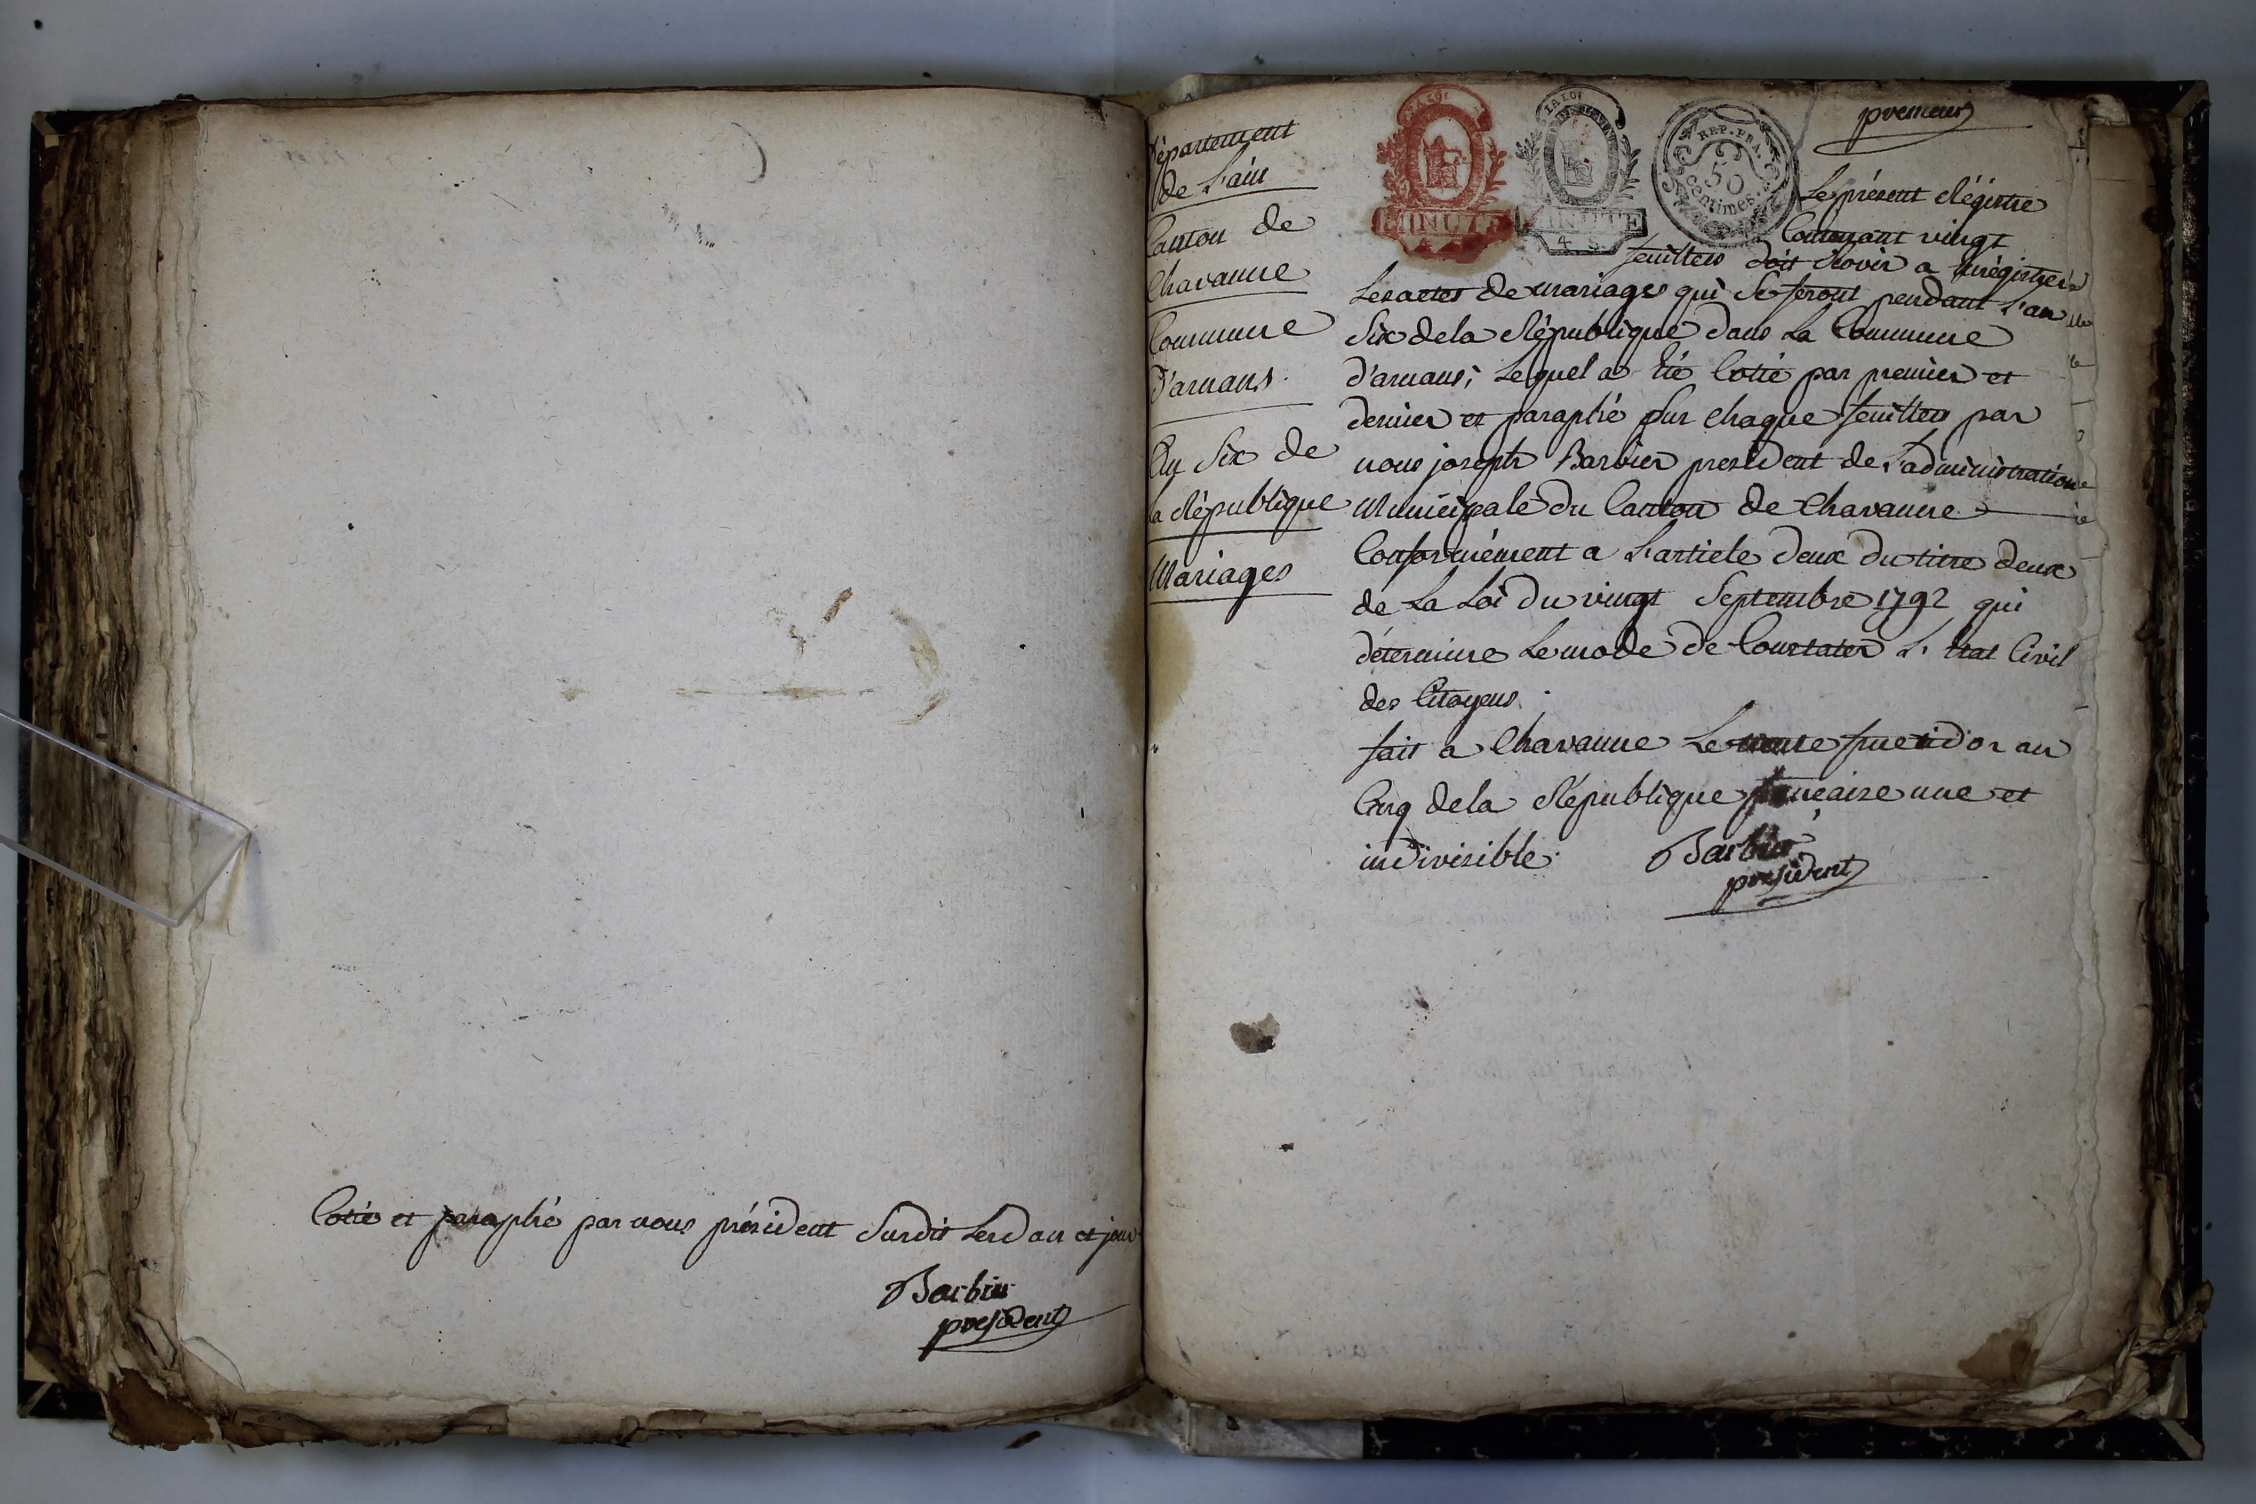 Cotté et paraphé par nous président Surdit Lesd an et jour
Barbier
president
Département
de L'ain
Canton de
Chavanne
Commune
D'arnans
An Six de
La République
Mariages
LA LOI
MINUTE
LA LOI
MINUTE
4 S
REP. FRA.
50
centimes
premier
Le présent Régistre
Contenant vingt
feuillets doit servir a enrégistrer
Les actes de mariages qui se feront pendant L'an
Six de la République dans La Commune
d'arnans; Lequel a été Cotté par premier et
dernier et paraphé sur chaque feuillets par
nous joseph Barbier president de L'administration
Municipale du Canton de Chavanne
Conformément a L'article deux du titre deux
de La Loi du vingt Septembre 1792 qui
détermine Le mode de Constater L'état Civil
des Citoyens.
fait a Chavanne Le fructidor an
Cinq de la République française une et
indivisible.
Barbier
president